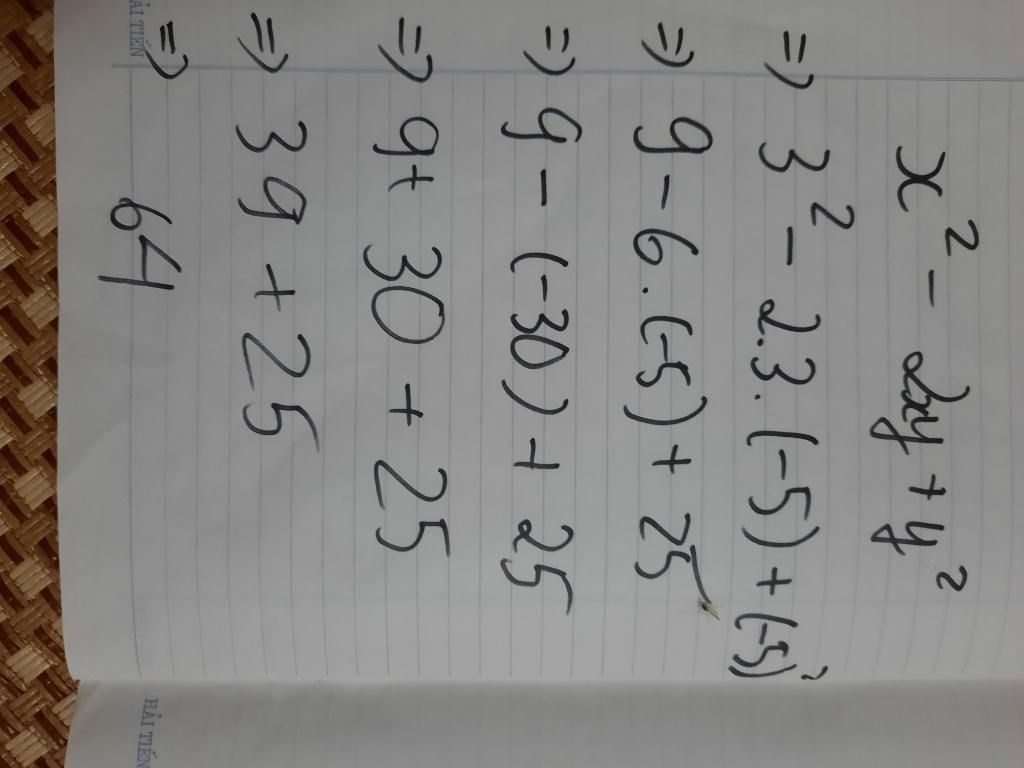 x² - 2xy + y²
=> 3² - 2.3.(-5) + (-5)²
=> 9 - 6.(-5) + 25
=> 9 - (-30) + 25
=> 9 + 30 + 25
=> 39 + 25
=> 64
HẢI TIẾN
HẢI TIẾN